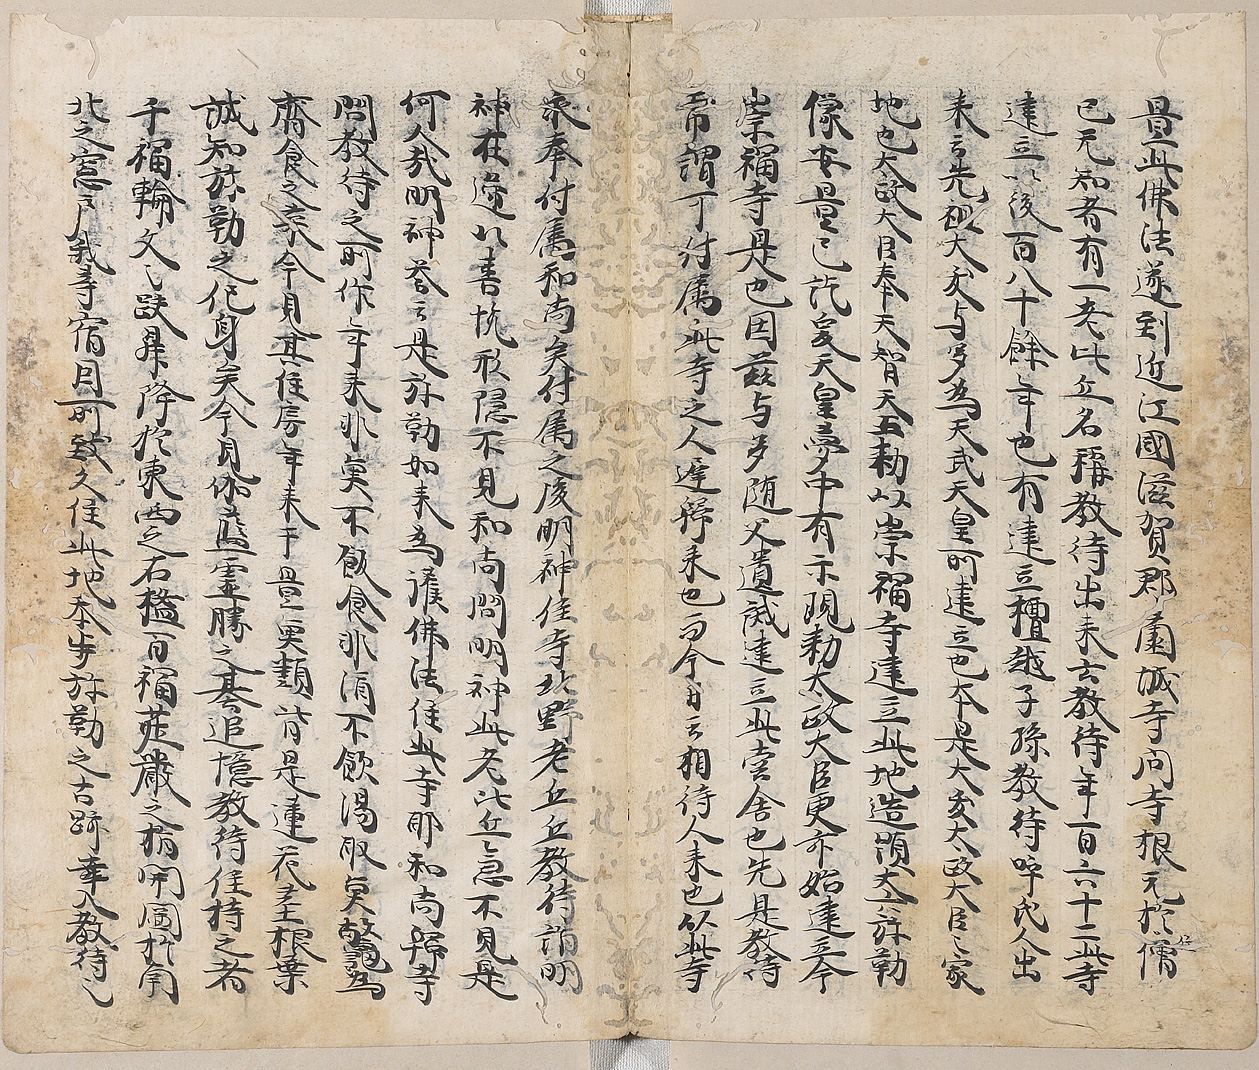 量此佛法遂到近江國滋賀郡薗城寺問寺根元於僧
已无知者有一老比丘名稱教待出来云教待年百六十二此寺
達立以後百八十餘年也有達立檀越子孫教待呼氏人出
来云先祖大友与多為天武天皇所達立也本是大友太政大臣之家
地也太政大臣奉天智天王勅以崇福寺達立此地造頭大弥勒
像安置已訖爰天皇夢中有示現勅太政大臣更亦始達立今
崇福寺是也因茲与多随父遺誡達立此堂舎也先是教待
常謂可付属此寺之人遅停来也而今日云相待人来也以此寺
永奉付属和尚矣付属之後明神住寺北野老丘丘教待謂明
神在邊以喜忱形隠不見和尚問明神此老比丘忽不見是
何人哉明神荅云是弥勒如来為護佛法住此寺耶和尚帰寺
問教待之所作年来非魚不飯食非酒不飲湯取魚故亀為
齊食之菜今見其住房年来干置魚類皆是蓮花茎根葉
誠知弥勒之化身矣今見伽藍霊勝之碁追憶教待住持之者
千福輪文之趺昇降於東西之石橋百福荘厳之指開圖於南
北之窓戸我寺宿因所致久住此地奉歩弥勒之古跡幸入教待之